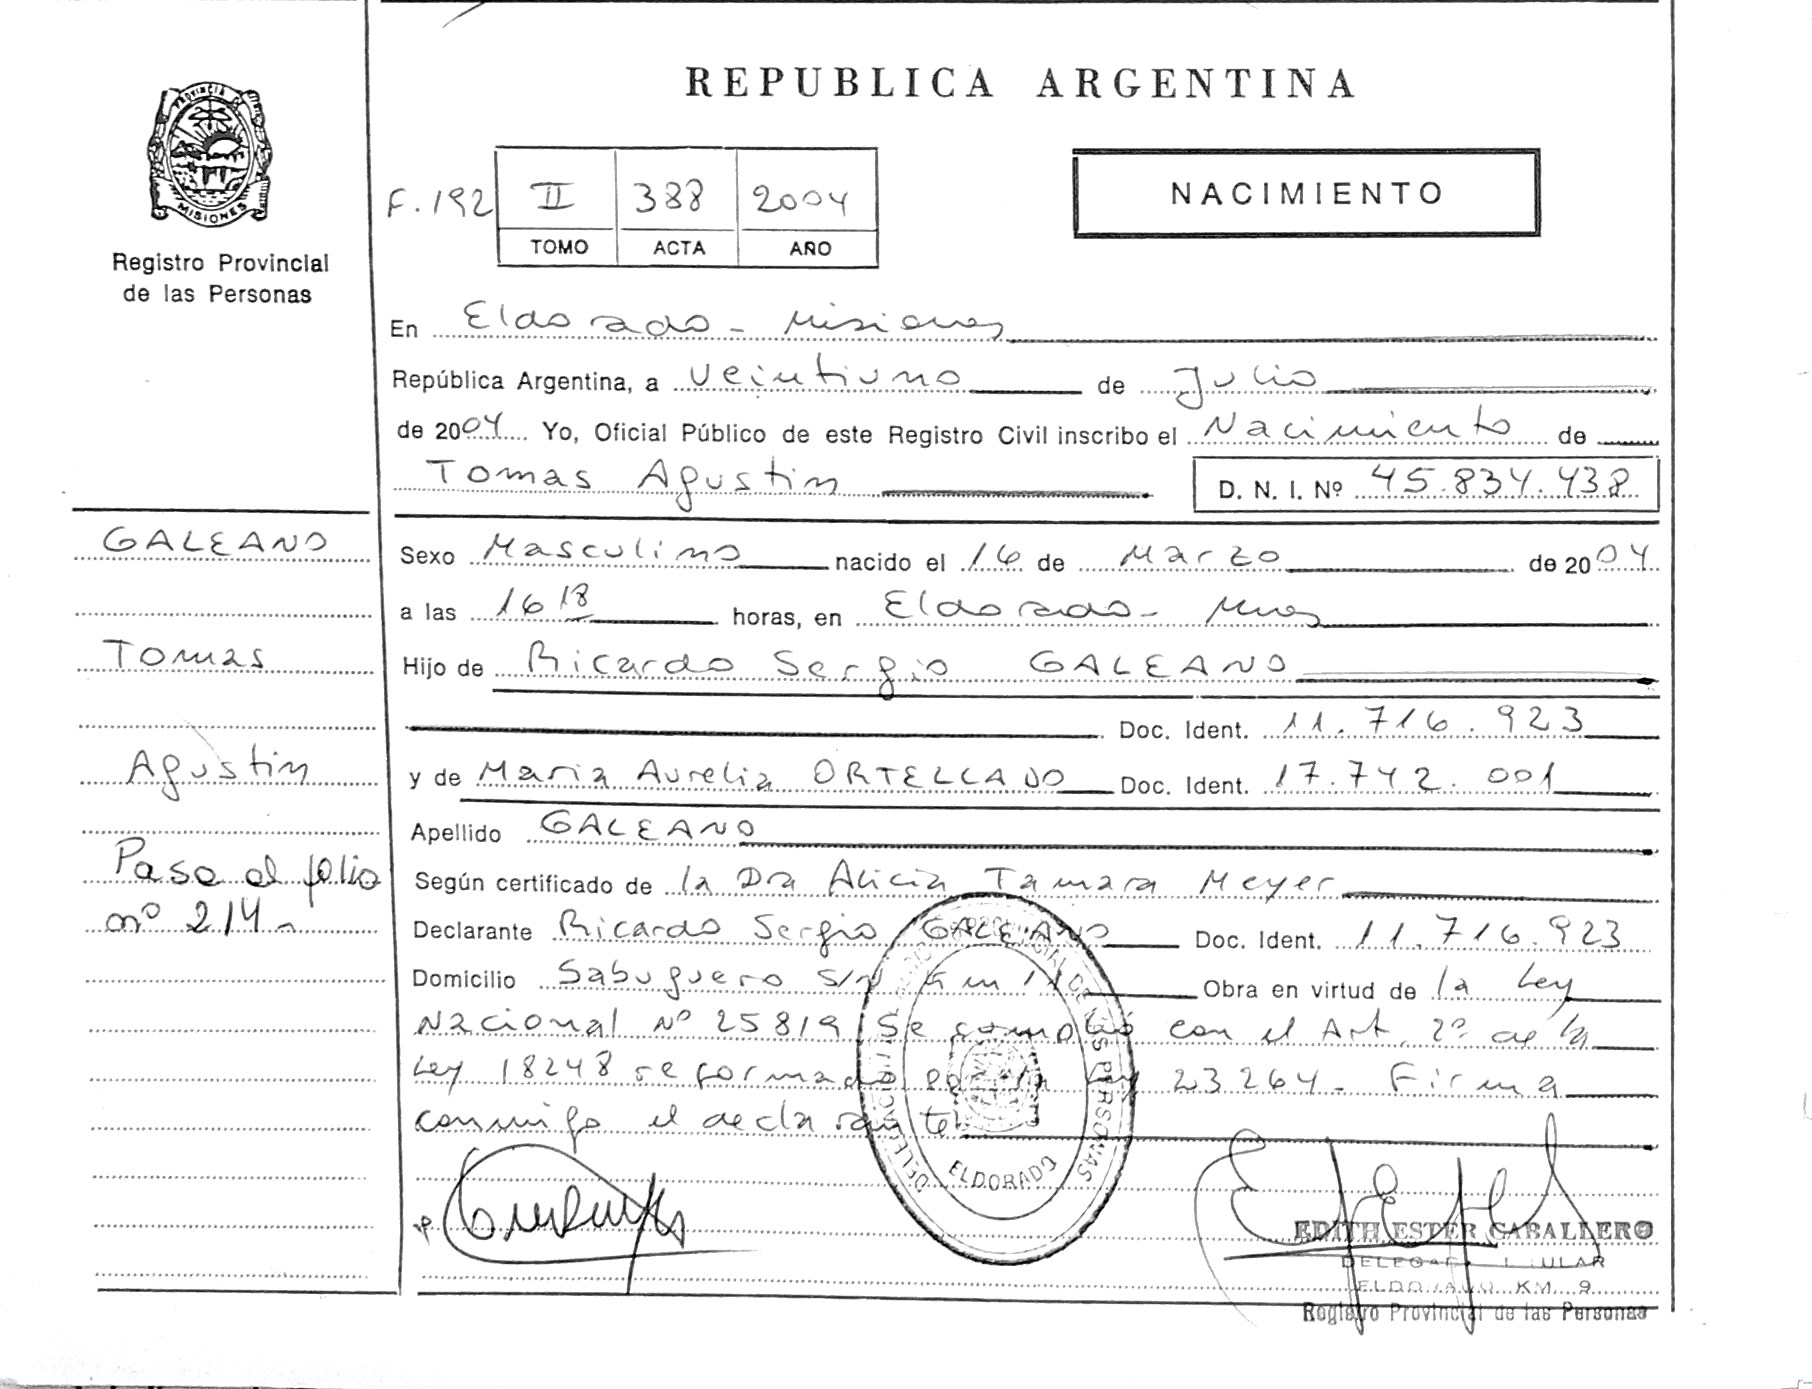 REPUBLICA ARGENTINA
PROVINCIA DE
MISIONES
Registro Provincial
de las Personas
F. 192 II 388 2004
TOMO ACTA AÑO
NACIMIENTO
En Eldorado - Misiones
República Argentina, a veintiuno de Julio
de 2004 Yo, Oficial Público de este Registro Civil inscribo el Nacimiento de
Tomas Agustin D. N. I. Nº 45.834.438
GALEANO
Tomas
Agustin
Pase al folio
nº 214-
Sexo Masculino nacido el 16 de Marzo de 2004
a las 16 18 horas, en Eldorado - Mnes
Hijo de Ricardo Sergio GALEANO
Doc. Ident. 11.716.923
y de Maria Aurelia ORTELLADO Doc. Ident. 17.742.001
Apellido GALEANO
Según certificado de la Dra Alicia Tamara Meyer
Declarante Ricardo Sergio GALEANO Doc. Ident. 11.716.923
Domicilio Sabuguero s/n Km 11 Obra en virtud de la Ley
Nacional Nº 25819 Se cumplió con el Art. 2º de la
Ley 18248 reformado por la Ley 23.264- Firma
conmigo el declarante
DELEGACION REGISTRO PROVINCIAL DE LAS PERSONAS
ELDORADO
EDITH ESTER CABALLERO
DELEGADA TITULAR
ELDORADO KM. 9
Registro Provincial de las Personas